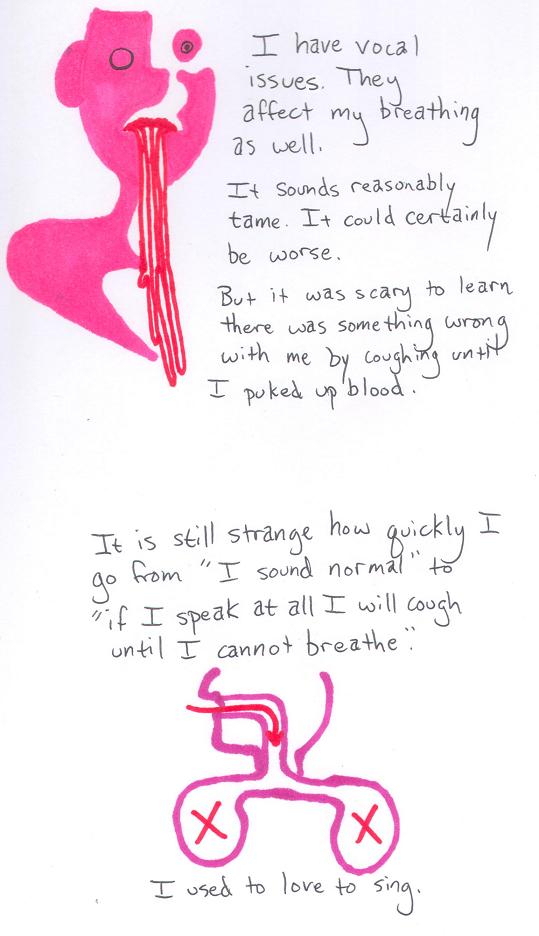 I have vocal
issues. They
affect my breathing
as well.
It sounds reasonably
tame. It could certainly
be worse.
But it was scary to learn
there was something wrong
with me by coughing until
I puked up blood.
It is still strange how quickly I
go from "I sound normal" to
"if I speak at all I will cough
until I cannot breathe".
X X
I used to love to sing.